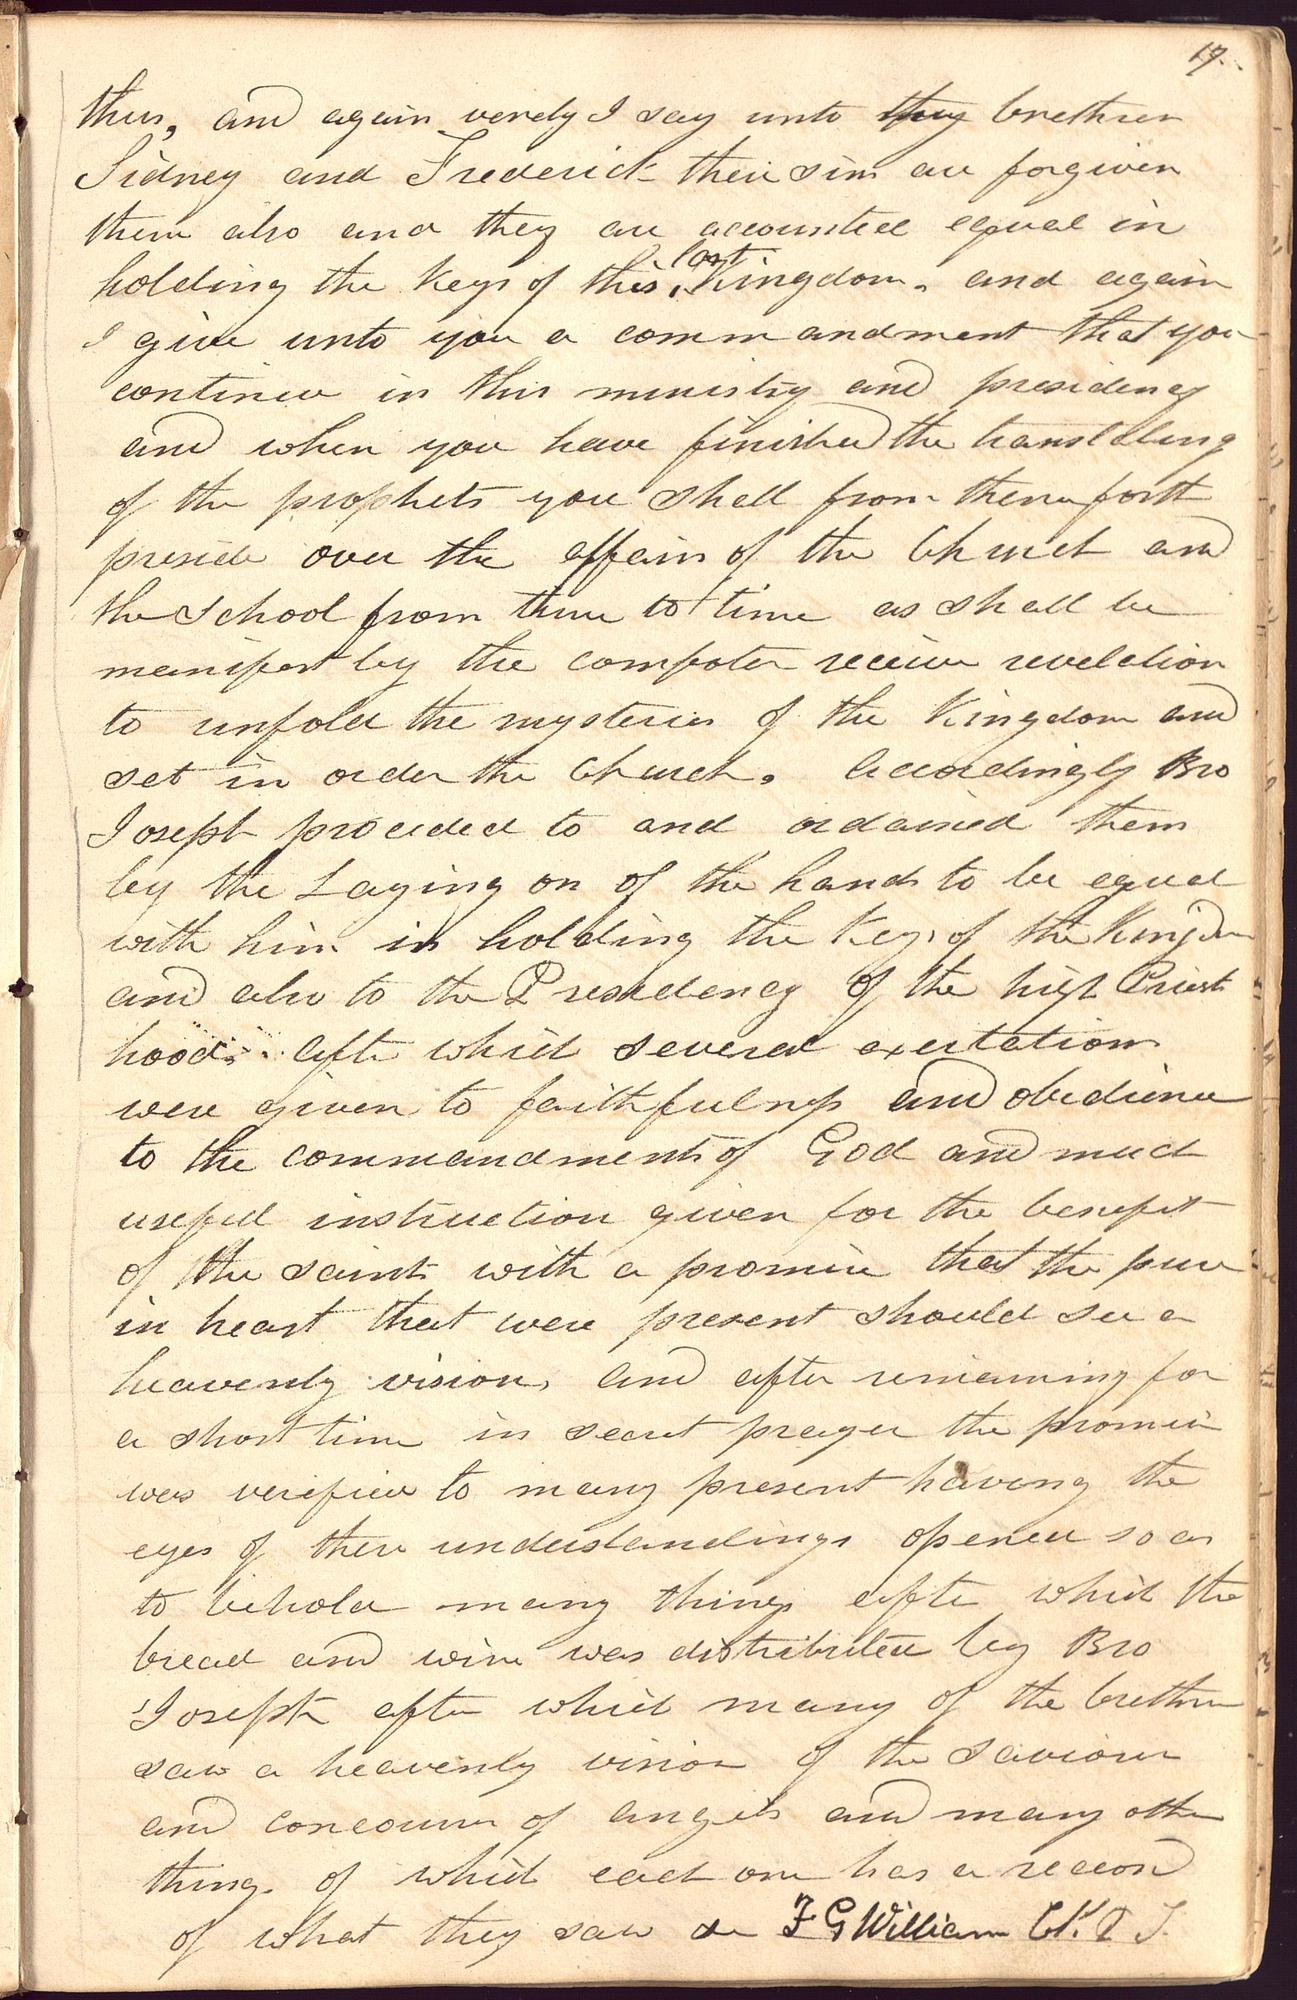 17.
thus, and again verely I say unto thy brethren
Sidney and Frederick their sins are forgiven
them also and they are accounted equal in
holding the keys of this last Kingdom. and again
I give unto you a commandment that you
continue in this ministry and presidency
and when you have finished the translating
of the prophets you shall from thenceforth
preside over the affairs of the Church and
the School from time to time as shall be
manifest by the comfoter receive revelation
to unfold the mysteries of the Kingdom and
set in order the Church. Accordingly Bro
Joseph proceded to and ordained them
by the Laying on of the hands to be equal
with him in holding the Keys of the Kingdom
and also to the Presidency of the high Priest
hood. after which several exertations
were given to faithfulness and obedience
to the commandments of God and much
useful instruction given for the benefit
of the saints with a promise that the pure
in heart that were present should see a
heavenly vision, and after remaining for
a short time in secret prayer the promise
was verified to many present having the
eyes of there understandings opened so as
to behold many things after which the
bread and wine was distributed by Bro
Joseph after which many of the brethren
saw a heavenly vision of the Saviour
and concourse of angels and many other
things of which each one has a record
of what they saw &c F G Williams Ck. P T.